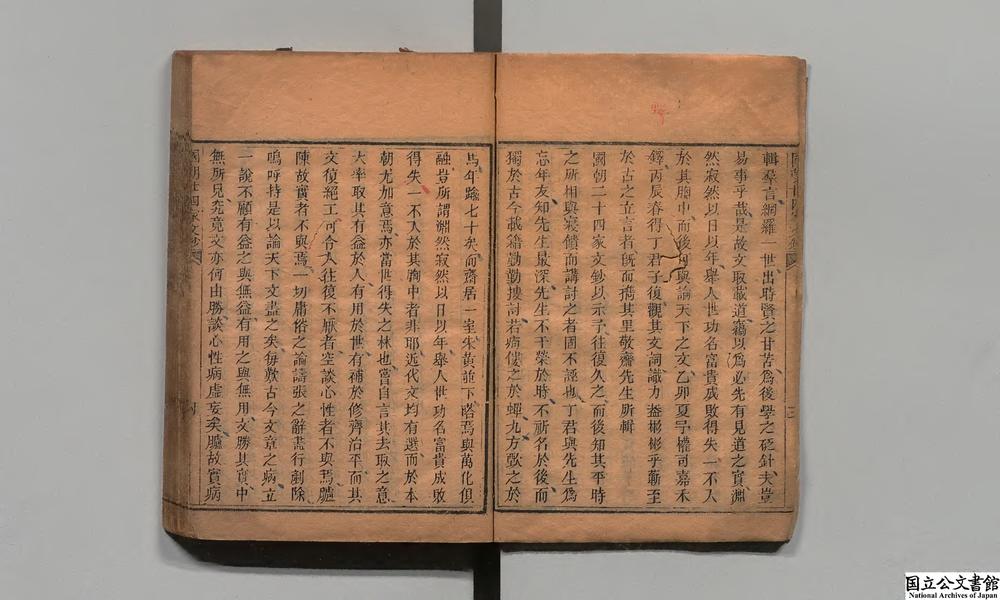 輯羣言網羅一世出時賢之甘苦為後學之砭針夫豈
易事乎哉是故文取載道蘊以為必先有見道之實淵
然寂然以日以年舉人世功名富貴成敗得失一不入
於其胸中而後可與論天下之文乙卯夏予權司嘉禾
鐸丙辰春得丁君子復觀其文詞識力葢彬彬乎蘄至
於古之立言者旣而攜其里敬齋先生所輯
國朝二十四家文鈔以示予往復久之而後知其平時
之所相與寢饋而講討之者固不誣也丁君與先生為
忘年友知先生最深先生不干榮於時不祈名於後而
獨於古今載籍勤勤摟討若痀僂之於蟬九方歅之於
馬年踰七十矣而齋居一室朱黃並下嗒焉與萬化俱
融豈所謂淵然寂然以日以年舉人世功名富貴成敗
得失一不入於其胸中者非耶近代文均有選而於本
朝尤加意焉亦當世得失之林也嘗自言其去取之意
大率取其有益於人有用於世有補於修齊治平而其
文復絕工可合人往復不厭者空談心性者不與焉臚
陳故實者不與焉一切庸俗之論譸張之辭盡行剷除
嗚呼持是以論天下文盡之矣每歎古今文章之病立
一說不顧有益之與無益有用之與無用文勝其實中
無所見究竟文亦何由勝談心性病虛妄矣臚故實病
國朝廿四家文鈔
國立公文書館
National Archives of Japan